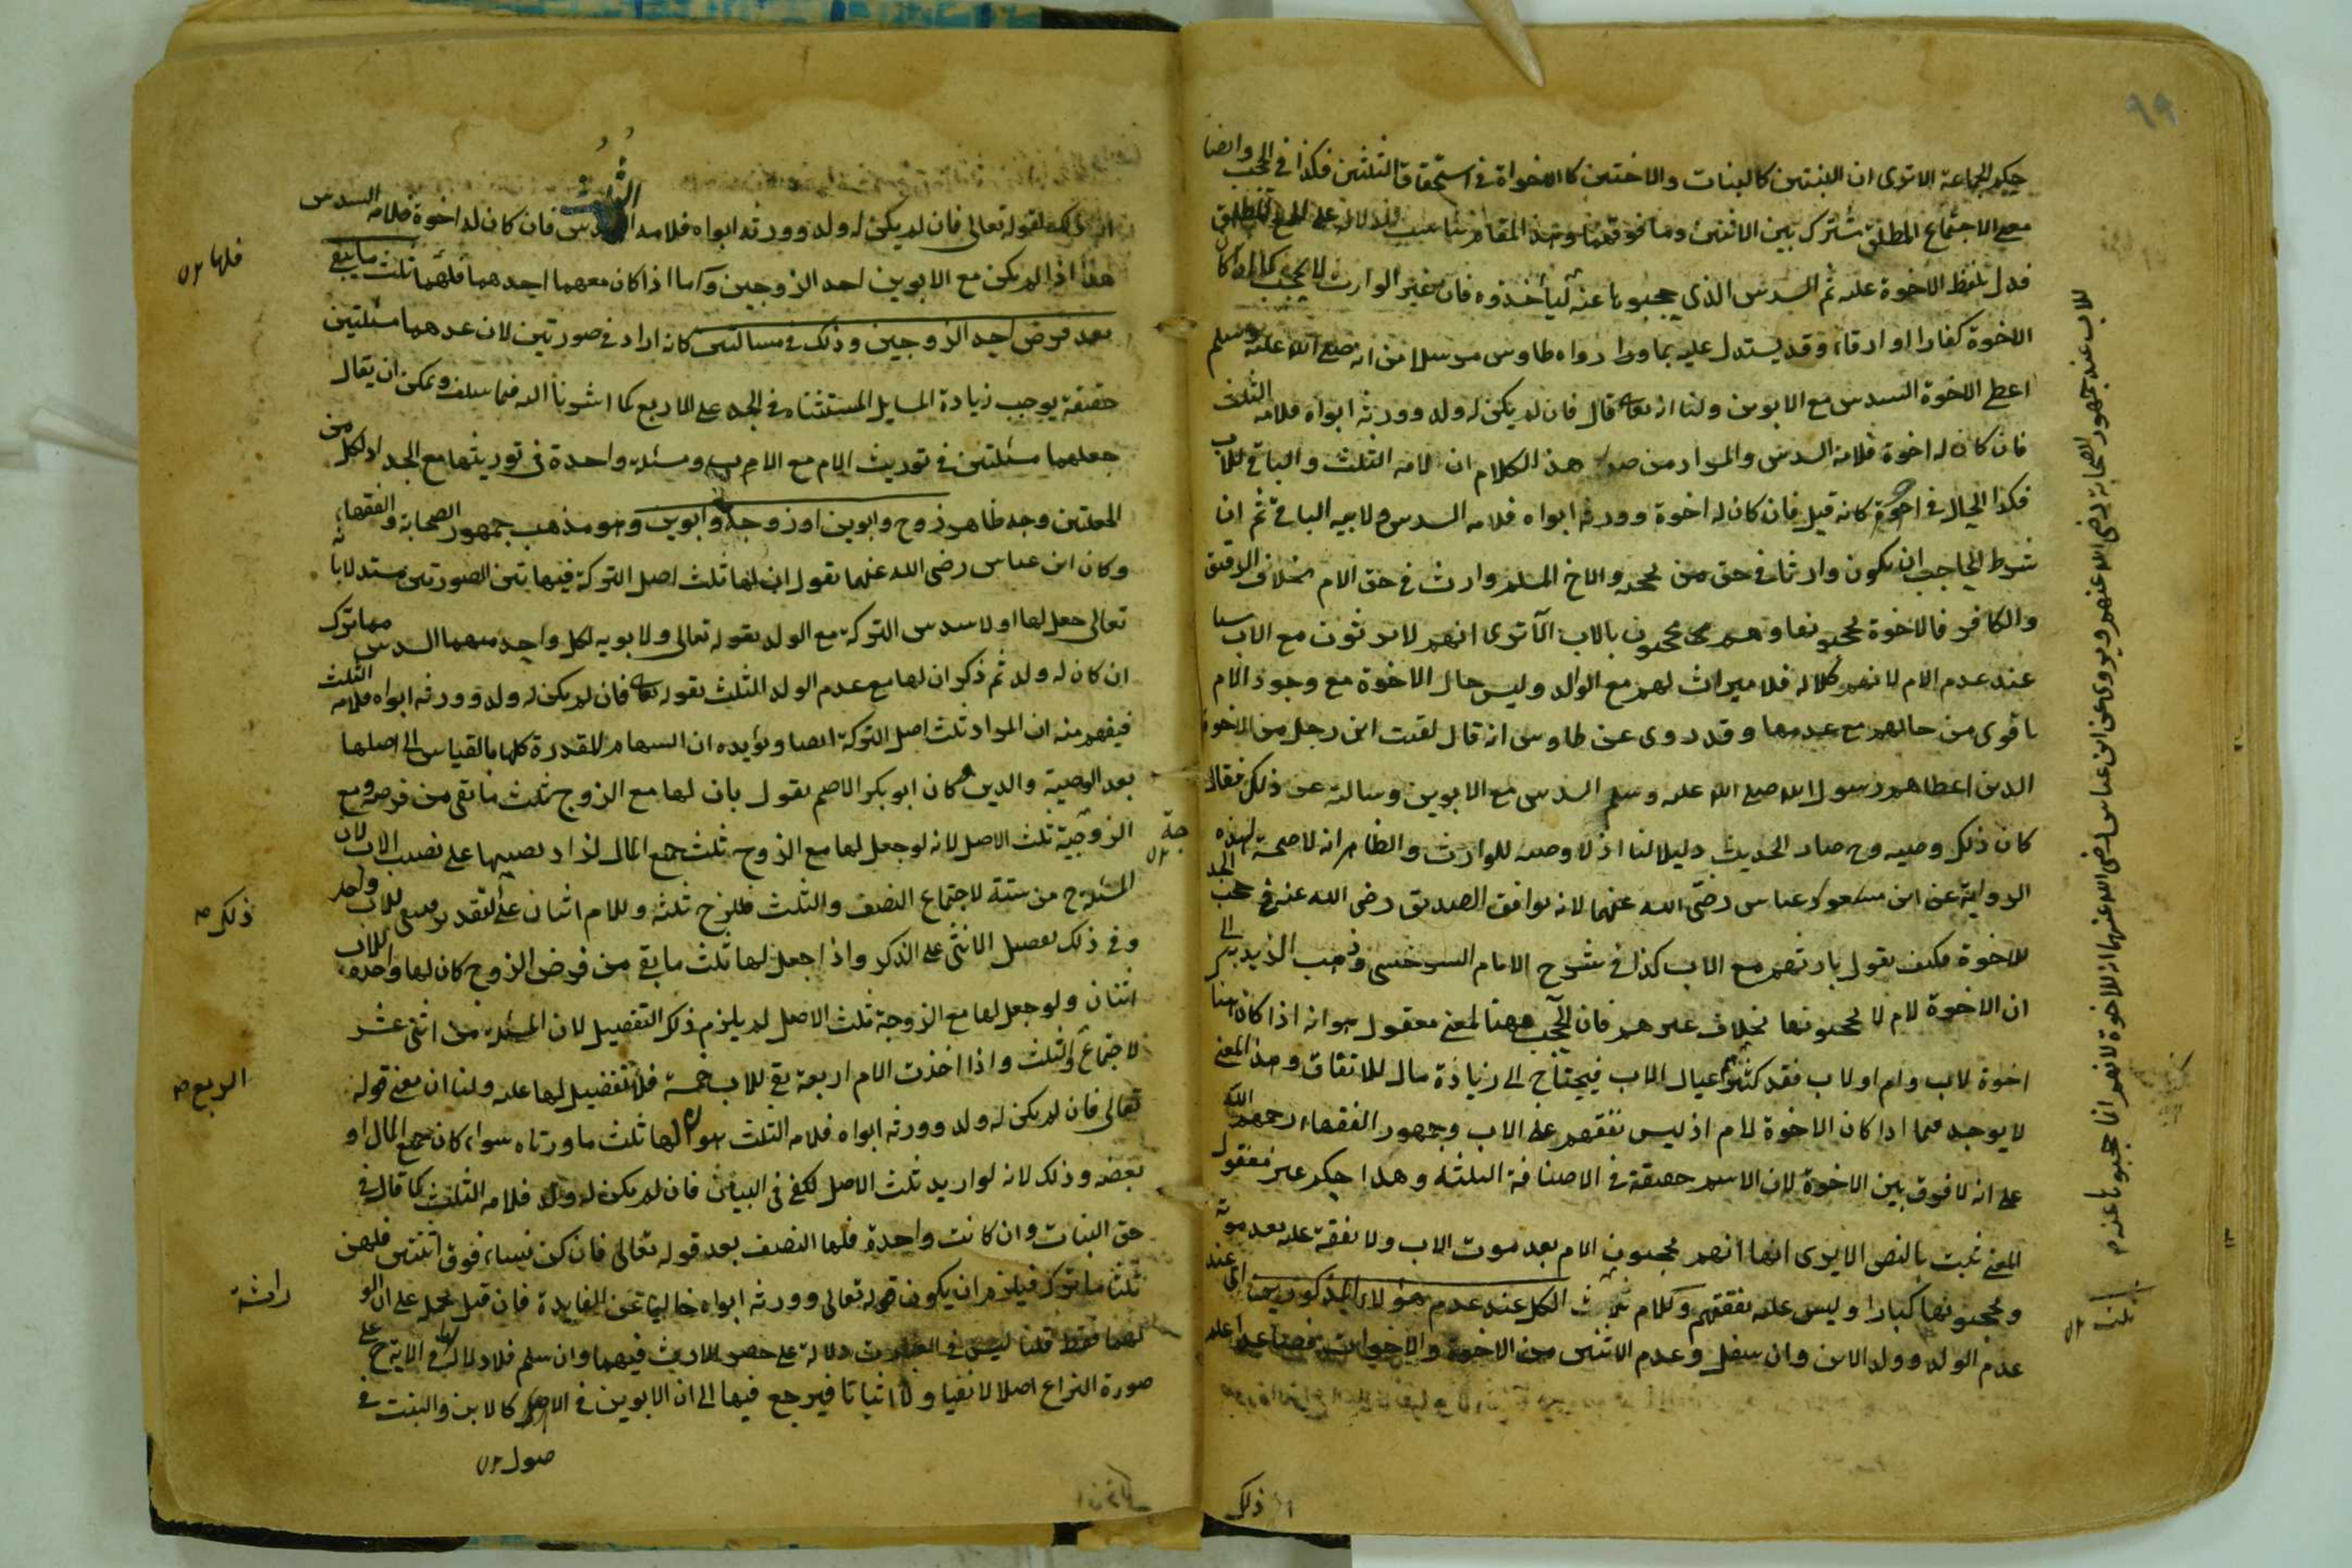 حكم الجماعة الا ترى ان البنتين كالبنات والاختين كالاخواة في استحقاق الثلثين فكذا في الحجب وايضا
معنى الاجتماع المطلق مشترك بين الاثنين وما فوقهما وهذا المقام يناسب الدلالة على الجمع المطلق
فدل بلفظ الاخوة عليه ثم السدس الذي حجبوها عنه ليأخذوه فان غير الوارث لا يحجب كما اذا كان
الاخوة كفارا او ارقاء وقد يستدل عليه بما رواه طاوس مرسلا من انه صلى الله عليه وسلم
اعطى الاخوة السدس مع الابوين ولنا انه تعالى قال فان لم يكن له ولد وورثه ابواه فلامه الثلث
فان كان له اخوة فلامه السدس والمراد من صدر هذا الكلام ان لامه الثلث والباقي للاب
فكذا الحال في اخره كانه قيل فان كان له اخوة وورثه ابواه فلامه السدس ولابيه الباقي ثم ان
شرط الحاجب ان يكون وارثا في حق من يحجبه والاخ المسلم وارث في حق الام بخلاف الرقيق
والكافر فالاخوة يحجبونها وهم محجوبون بالاب الا ترى انهم لا يرثون مع الاب شيئا
عند عدم الام لانهم كلالة فلا ميراث لهم مع الوالد وليس حال الاخوة مع وجود الام
باقوى من حالهم مع عدمها وقد روى عن طاوس انه قال لقيت ابن رجل من الاخوة
الذين اعطاهم رسول الله صلى الله عليه وسلم السدس مع الابوين وسالته عن ذلك فقال
كان ذلك وصية وح صار الحديث دليلا لنا اذ لا وصية للوارث والظاهر انه لا صحة لهذه
الرواية عن ابن عباس رضى الله عنهما لانه يوافق الصديق رضى الله عنه في حجب الجد
للاخوة فكيف يقول بارثهم مع الاب كذا في شرح الامام السرخسي وذهب الزيدية الى
ان الاخوة لام لا يحجبونها بخلاف غيرهم فان الحجب ههنا لمعنى معقول هو انه اذا كان هنا
اخوة لاب وام او لاب فقد كثر عيال الاب فيحتاج الى زيادة مال للانفاق وهذا المعنى
لا يوجد فيما اذا كان الاخوة لام اذ ليس نفقتهم على الاب وجمهور الفقهاء رحمهم الله
على انه لا فرق بين الاخوة لان الاسم حقيقة في الاصناف الثلثة وهذا حكم غير معقول
المعنى ثبت بالنص الا يرى انها انهم يحجبون الام بعد موت الاب ولا نفقة عليه بعد موته
ويحجبونها كبارا وليس عليه نفقتهم وكلام ثلث الكل عند عدم هؤلاء المذكورين اى عند
عدم الولد وولد الابن وان سفل وعدم الاثنين من الاخوة والاخوات فصاعدا
للاب عند جمهور الصحابة رضى الله عنهم ويروى عن ابن عباس رضى الله عنهما انه للاخوة لانهم انما حجبوها عنه
ثلث
ذلك
ان ذلك لقوله تعالى فان لم يكن له ولد وورثه ابواه فلامه الثلث فان كان له اخوة فلامه السدس
هذا اذا لم يكن مع الابوين احد الزوجين واما اذا كان معهما احدهما فلها ثلث ما يبقى
بعد فرض احد الزوجين وذلك في مسالتين كانه اراد في صورتين لان عدهما مسئلتين
حقيقة يوجب زيادة المسايل المستثناة في الجد على الاربع كما اشرنا اليه فيما سلف ويمكن ان يقال
جعلهما مسئلتين في توريث الام مع الاب ومسئلة واحدة في توريثها مع الجد ولكل من
الجعلتين وجه ظاهر زوج وابوين او زوجة وابوين وهو مذهب جمهور الصحابة والفقهاء
وكان ابن عباس رضى الله عنهما يقول ان لها ثلث اصل التركة فيهاتين الصورتين مستدلا بانه
تعالى جعل لها اولا سدس التركة مع الولد بقوله تعالى ولابويه لكل واحد منهما السدس مما ترك
ان كان له ولد ثم ذكر ان لها مع عدم الولد الثلث بقوله تعالى فان لم يكن له ولد وورثه ابواه فلامه الثلث
فيفهم منه ان المراد ثلث اصل التركة ايضا ويؤيده ان السهام المقدرة كلها بالقياس الى اصلها
بعد الوصية والدين وكان ابو بكر الاصم يقول بان لها مع الزوج ثلث ما بقى من فرضه ومع
الزوجة ثلث الاصل لانه لو جعل لها مع الزوج ثلث جميع المال لزاد نصيبها على نصيب الاب لان
المسئلة ح من ستة لاجتماع النصف والثلث فللزوج ثلثة وللام اثنان على تقدير فيبقى للاب واحد
وفي ذلك تفضيل الانثى على الذكر واذا جعل لها ثلث ما بقى من فرض الزوج كان لها واحد وللاب
اثنان ولو جعل لها مع الزوجة ثلث الاصل لم يلزم ذلك التفضيل لان المسئلة من اثنى عشر
لاجتماع والثلث واذا اخذت الام اربعة بقى للاب خمسة فلا تفضيل لها عليه ولنا ان معنى قوله
تعالى فان لم يكن له ولد وورثه ابواه فلامه الثلث هو ان لها ثلث ما ورثاه سواء كان جميع المال او
بعضه وذلك لانه لو اريد ثلث الاصل لكفى في البيان فان لم يكن له ولد فلامه الثلث كما قال في
حق البنات وان كانت واحدة فلها النصف بعد قوله تعالى فان كن نساء فوق اثنتين فلهن
ثلثا ما ترك فيلزم ان يكون قوله تعالى وورثه ابواه خاليا عن الفايدة فان قيل نحمله على ان الو
لهما فقط قلنا ليس في العبارت دلالة على حصر الارث فيهما وان سلم فلا دلالة في الاية ح على
صورة النزاع اصلا لا نفيا ولا اثباتا فيرجع فيها الى ان الابوين في الاصول كالابن والبنت في
فلها
جة
ذلك
الربع
راثة
صول